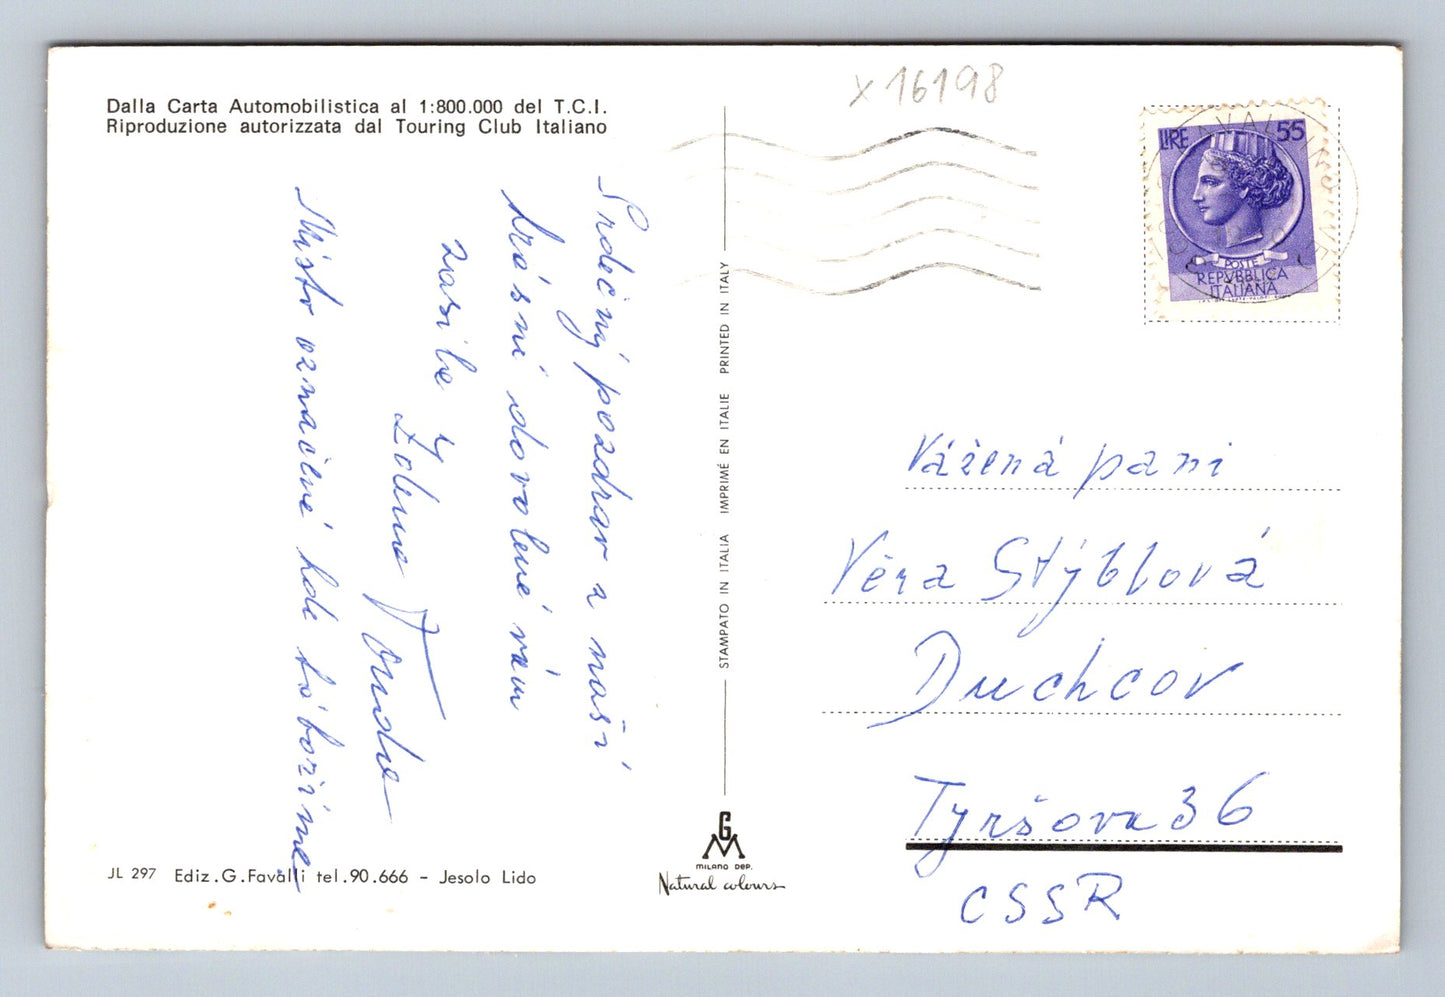 x 16198
Dalla Carta Automobilistica al 1:800.000 del T.C.I.
Riproduzione autorizzata dal Touring Club Italiano
LIRE 55
POSTE
REPVBBLICA
ITALIANA
Srdečný pozdrav z naší
krásné dovolené vám
zasílá
Fouda
Místo označené kde táboříme
STAMPATO IN ITALIA IMPRIMÉ EN ITALIE PRINTED IN ITALY
Vážená pani
Věra Stýblová
Duchcov
Tyršova 36
CSSR
GM
MILANO DEP.
Natural colours
JL 297 Ediz.G.Favalli tel.90.666 - Jesolo Lido